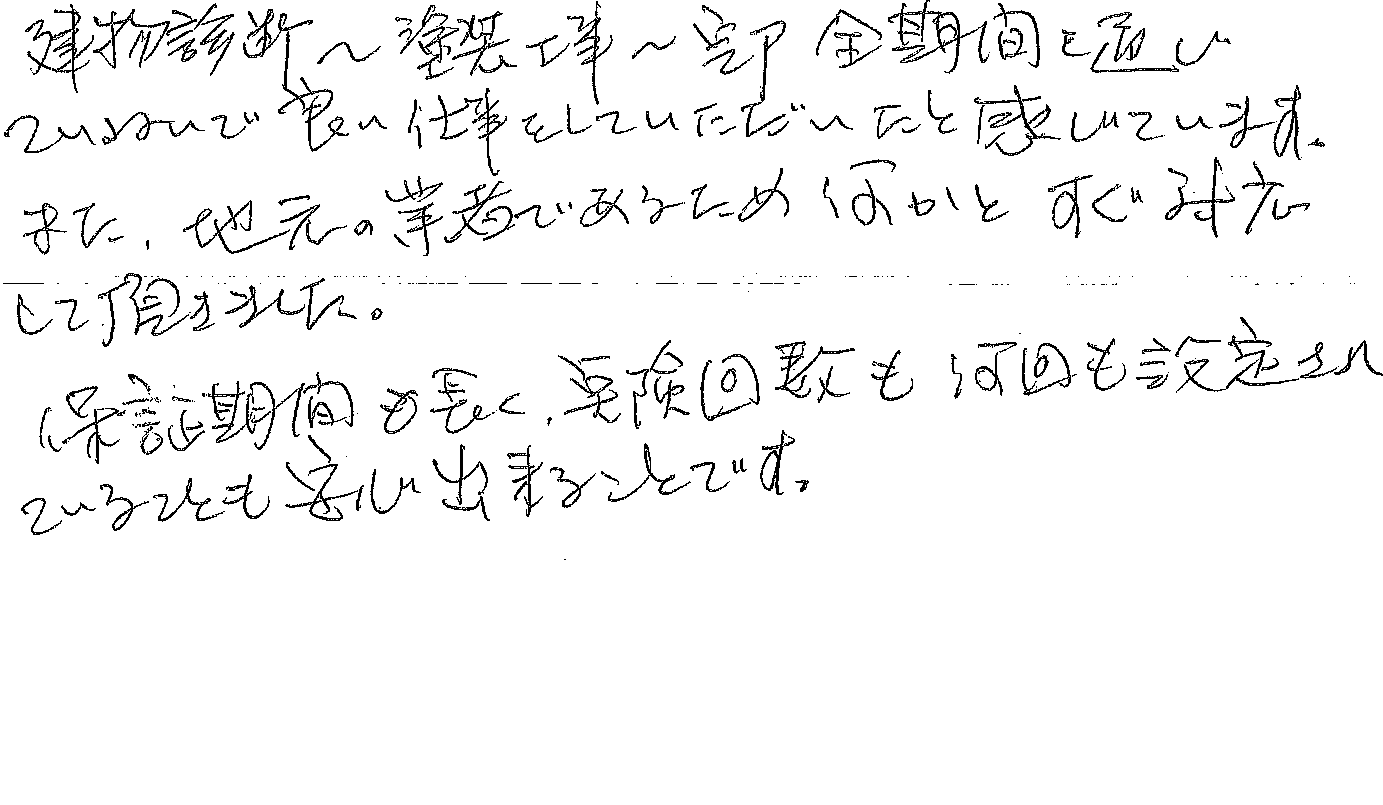 建物診断～塗装工事～完了 全期間を通じ
ていねいで良い仕事をしていただいたと感じています。
また、地元の業者であるため何かとすぐ対応
して頂きました。
保証期間も長く、点検回数も何回も設定され
ていることも安心出来ることです。